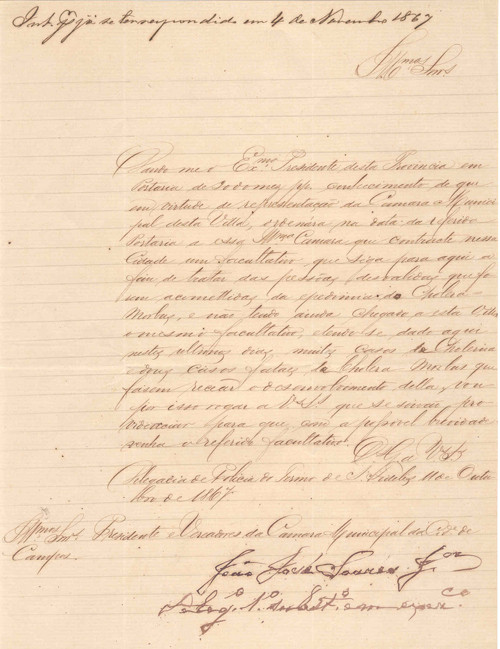 Int. já se tem respondido em 4 de Novembro 1867
Illmos. Snrs.
Dando me o Exmo. Presidente desta Provincia em
Portaria de 20 do mez pp. conhecimento de que
em virtude de representação da Camara Munici
pal desta Villa, ordenára, na data da referida
Portaria a essa Illma. Camara que contracte nessa
Cidade um facultativo, que siga para aqui a
fim de tratar das pessôas desvalidas que fo
rem acomettidas da epedimia do Cholera-
Morbus, e não tendo ainda chegado a esta Villa
o mesmo facultativo, e tendo se dado aqui
nestes ultimos dias, muitos casos de Cholerina
e dous casos fataes de Cholera Morbus que
fasem reciar o desenvolvimento della, vou
por isso rogar a V. Sas. que se sirvão pro
videnciar para que, com a possivel brevidade
venha o referido facultativo.
D. G. a V. Sas.
Delegacia de Policia do Termo de S. Fidelis 11 de Outu
bro de 1867.
Illmos. Snrs. Presidente e Vereadores da Camara Municipal da Cide. de
Campos.
João José Soares Jor.
Deleg.o 1.o Subst.o em exer.co